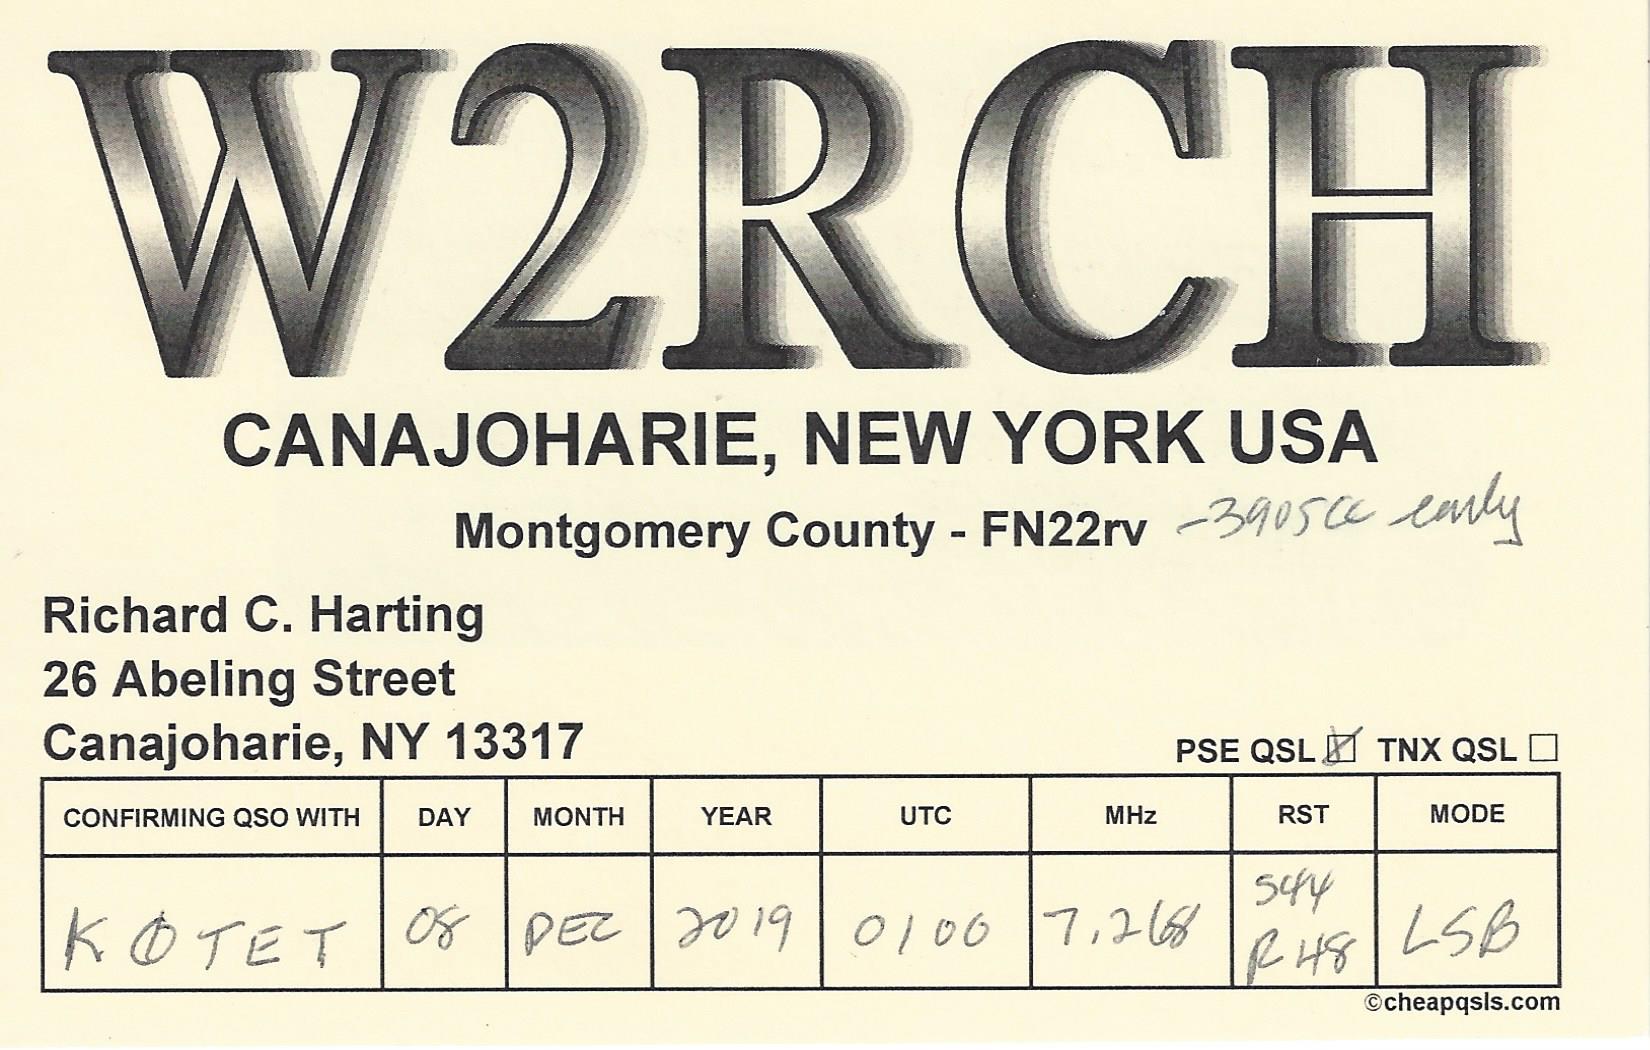 W2RCH
CANAJOHARIE, NEW YORK USA
Montgomery County - FN22rv -3905cc early
Richard C. Harting
26 Abeling Street
Canajoharie, NY 13317
PSE QSL ☒ TNX QSL ☐
CONFIRMING QSO WITH DAY MONTH YEAR UTC MHz RST MODE
KØTET 08 DEC 2019 0100 7.268 S44 R48 LSB
©cheapqsls.com